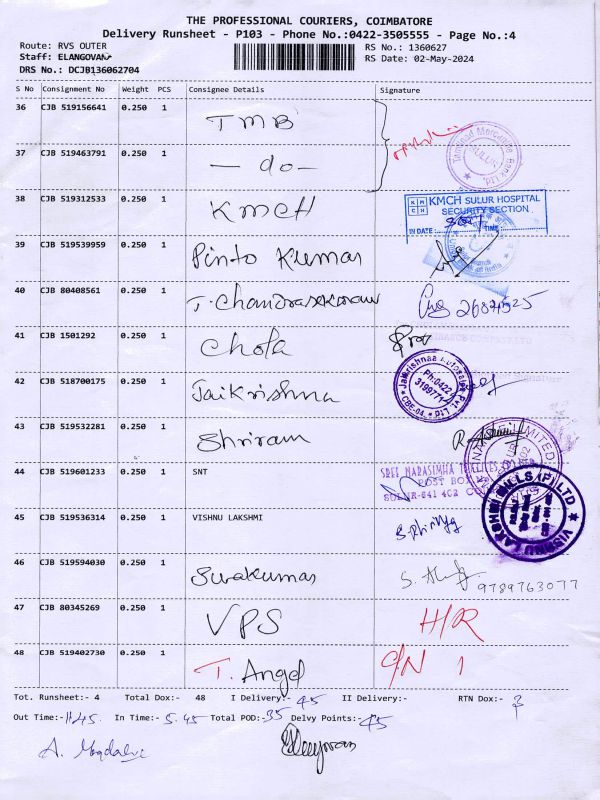 THE PROFESSIONAL COURIERS, COIMBATORE
Delivery Runsheet - P103 - Phone No.:0422-3505555 - Page No.:4
Route: RVS OUTER
RS No.: 1360627
Staff: ELANGOVAN
RS Date: 02-May-2024
DRS No.: DCJB136062704
S No Consignment No Weight PCS Consignee Details Signature
36 CJB 519156641 0.250 1 TMB
Tamilnad Mercantile Bank Ltd. SULUR
37 CJB 519463791 0.250 1 - do -
38 CJB 519312533 0.250 1 KMCH
KMCH SULUR HOSPITAL
SECURITY SECTION
IN DATE: TIME:
39 CJB 519539959 0.250 1 Pinto Kumar
40 CJB 80408561 0.250 1 T. Chandrasekaran
41 CJB 1501292 0.250 1 Chola
42 CJB 518700175 1 Jaikrishna
Jaikrishnaa Autosales Pvt. Ltd. CBE-04.
Ph:0422
3199771
43 CJB 519532281 0.250 1 Shriram
44 CJB 519601233 0.250 1 SNT
SREE NARASIMHA
POST BOX
SULUR-641 402
45 CJB 519536314 0.250 1 VISHNU LAKSHMI
VISHNU LAKSHMI MILLS (P) LTD
46 CJB 519594030 0.250 1 Sivakumar
9789763077
47 CJB 80345269 0.250 1 VPS H/R
48 CJB 519402730 0.250 1 T. Angel C/N 1
Tot. Runsheet:- 4 Total Dox:- 48 I Delivery:- 45 II Delivery:- RTN Dox:- 3
Out Time:- 11.45 In Time:- 5.45 Total POD:- 35 Delvy Points:- 45